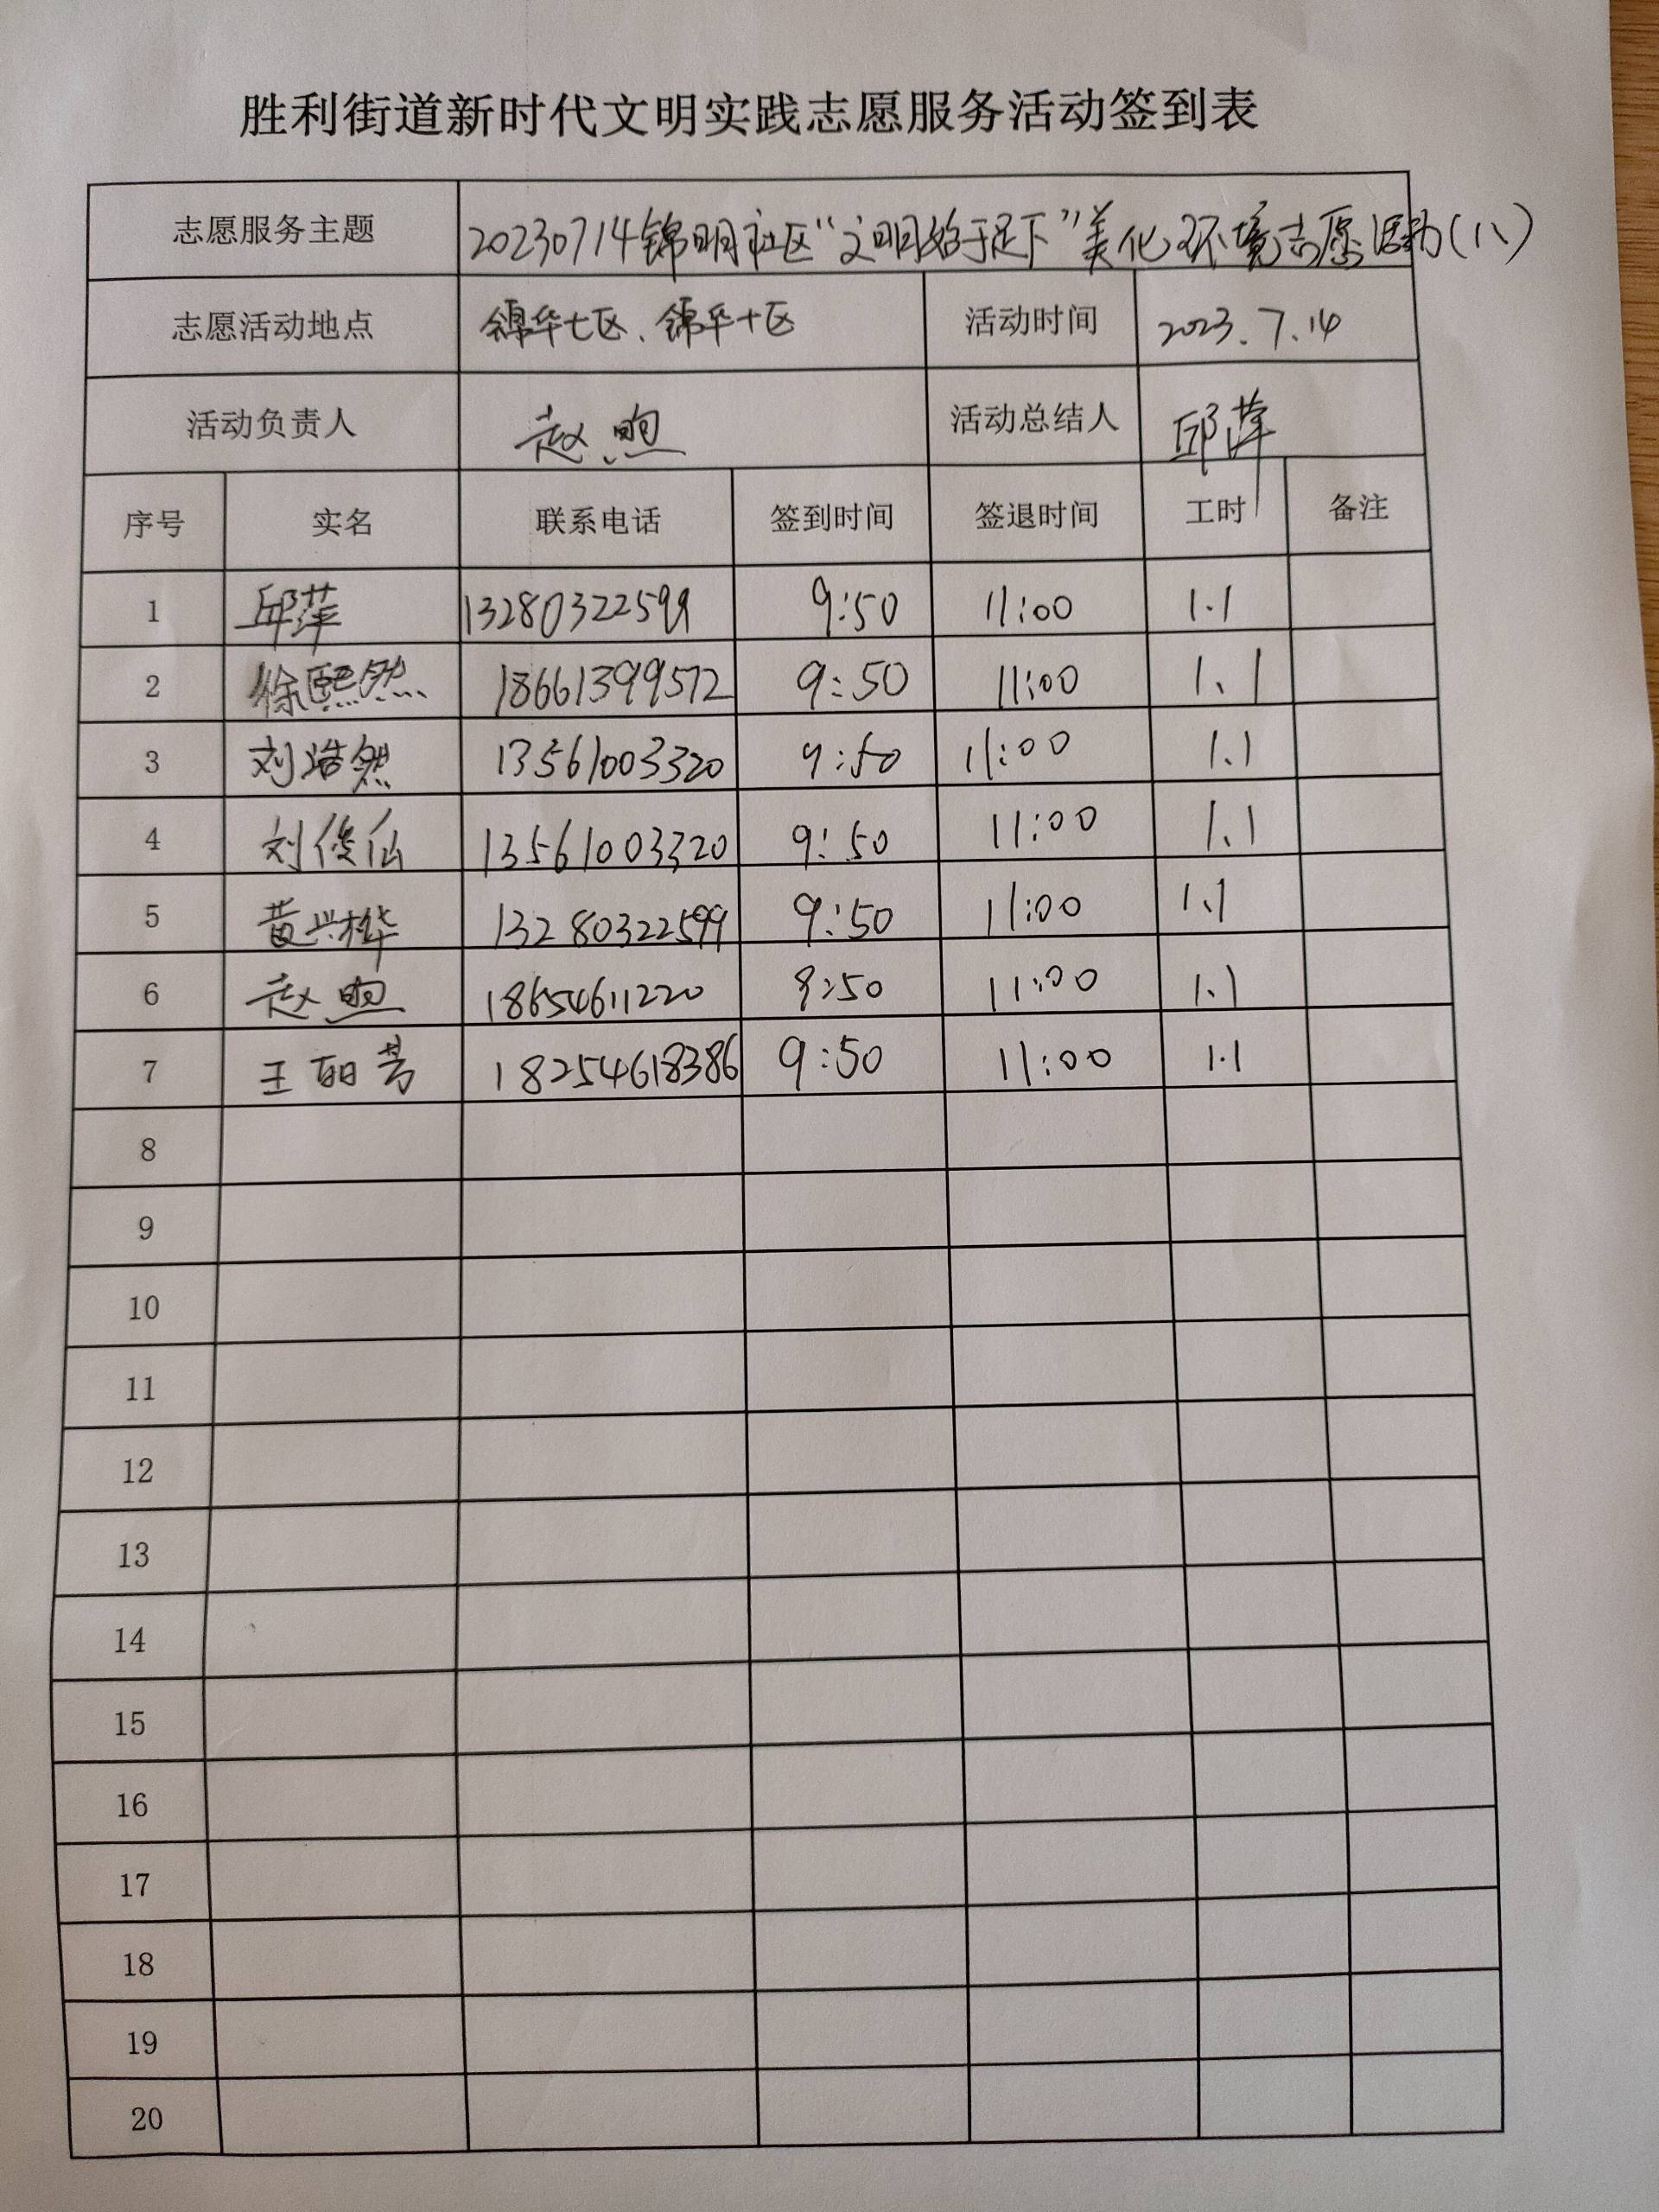 胜利街道新时代文明实践志愿服务活动签到表
志愿服务主题 20230714锦明社区“文明始于足下”美化环境志愿活动(八)
志愿活动地点 锦华七区、锦华十区 活动时间 2023.7.14
活动负责人 赵煦 活动总结人 邱萍
序号 实名 联系电话 签到时间 签退时间 工时 备注
1 邱萍 13280322599 9:50 11:00 1.1
2 徐熙然 18661399572 9:50 11:00 1.1
3 刘浩然 13561003320 9:50 11:00 1.1
4 刘俊仙 13561003320 9:50 11:00 1.1
5 黄兴桦 13280322599 9:50 11:00 1.1
6 赵煦 18654611220 9:50 11:00 1.1
7 王 18254618386 9:50 11:00 1.1
8
9
10
11
12
13
14
15
16
17
18
19
20